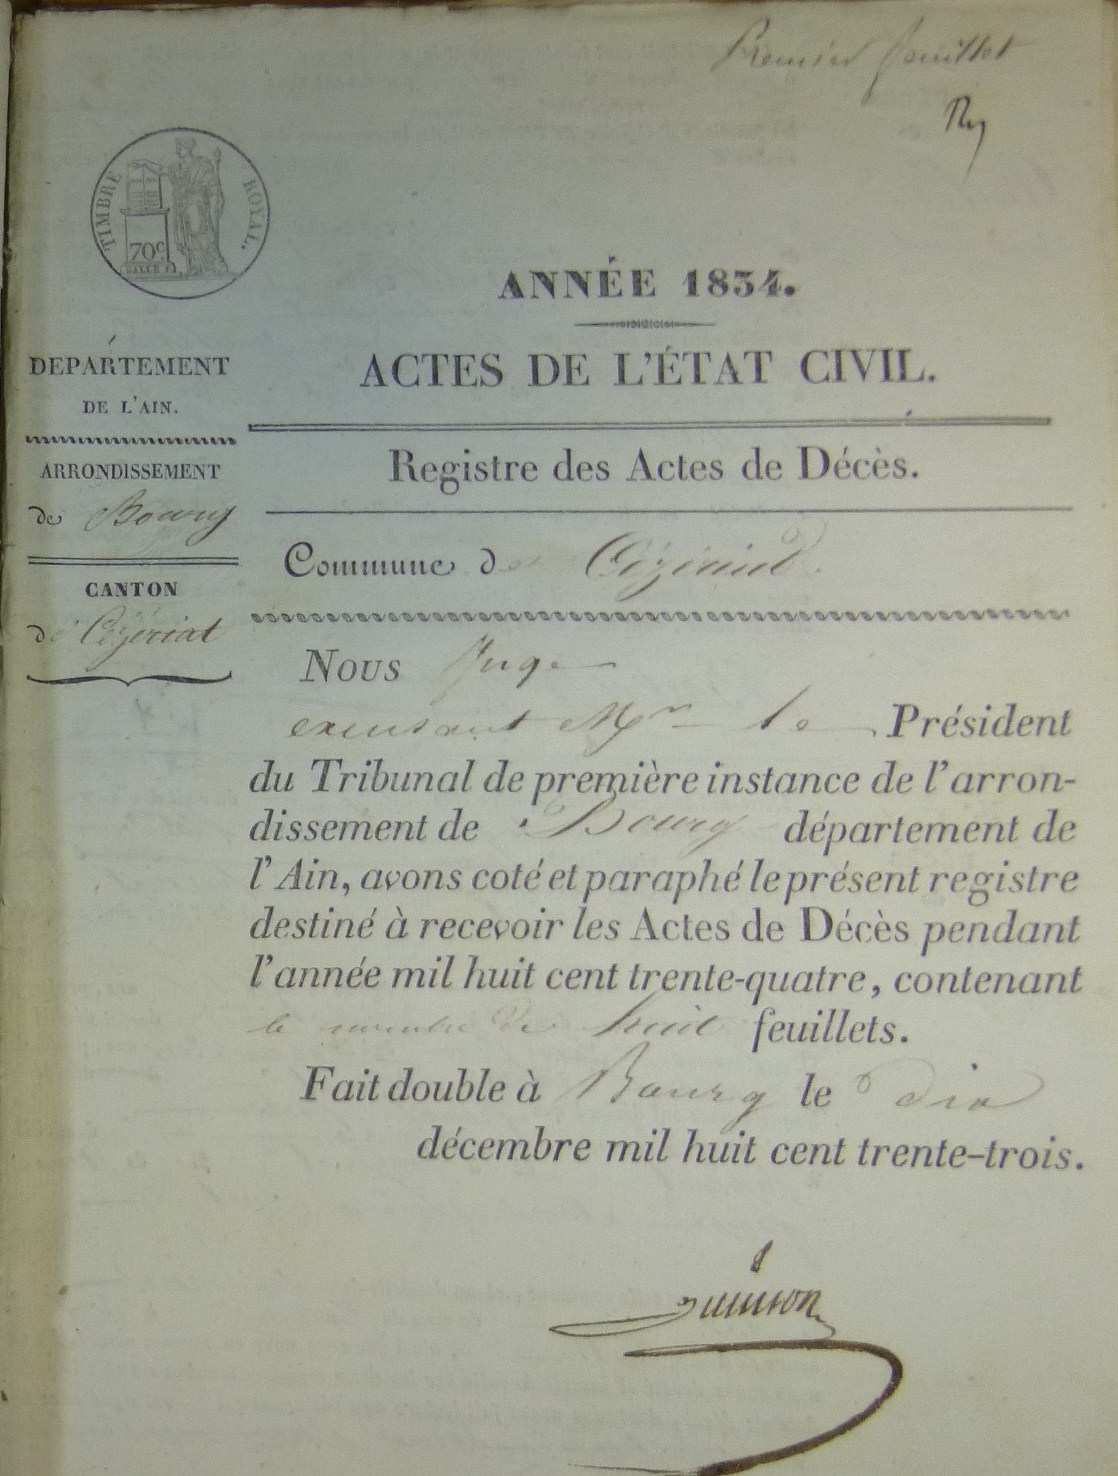 Premier feuillet
TIMBRE ROYAL.
70c
ANNÉE 1834.
DEPARTEMENT
DE L'AIN.
ACTES DE L'ÉTAT CIVIL.
ARRONDISSEMENT
de Bourg
Registre des Actes de Décès.
CANTON
de Cézériat
Commune de Cézériat.
Nous Juge
excusant Mr le Président
du Tribunal de première instance de l'arron-
dissement de Bourg département de
l'Ain, avons coté et paraphé le présent registre
destiné à recevoir les Actes de Décès pendant
l'année mil huit cent trente-quatre, contenant
le nombre de huit feuillets.
Fait double à Bourg le dix
décembre mil huit cent trente-trois.